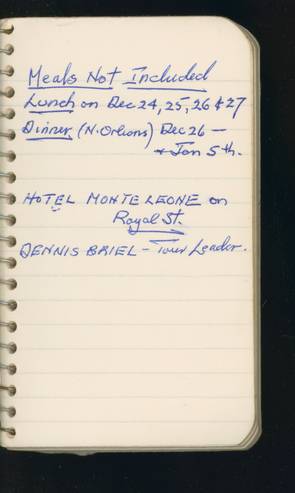 Meals Not Included
Lunch on Dec 24, 25, 26 & 27
Dinner (N. Orleans) Dec 26 –
& Jan 5th.
HOTEL MONTE LEONE on
Royal St.
DENNIS BRIEL – Tour Leader.